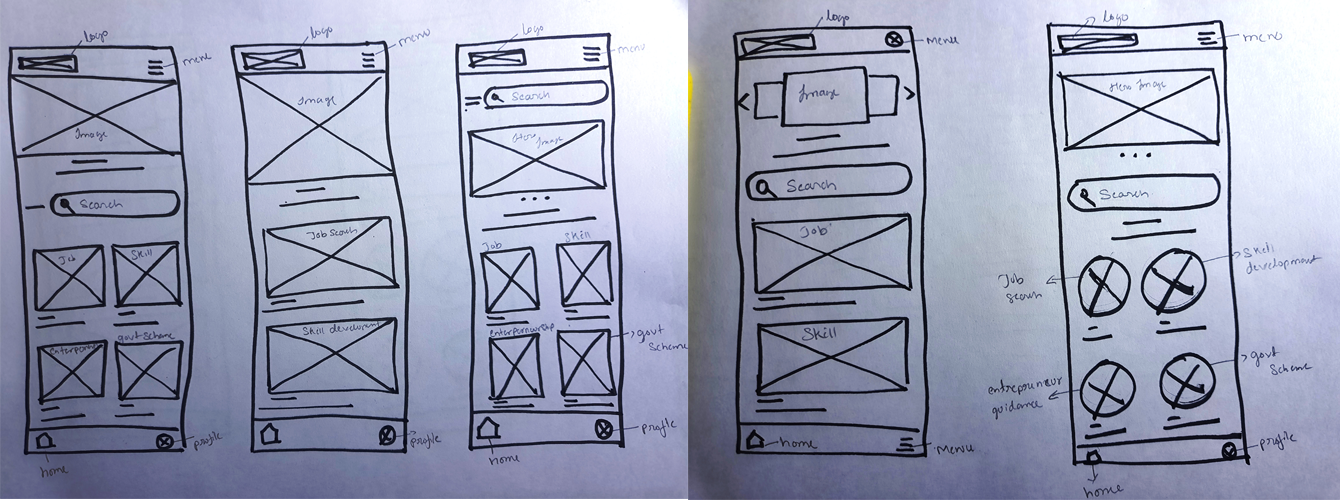 logo
menu
Image
Search
Job
Skill
govt scheme
home
profile
logo
menu
Image
Job Search
Skill development
profile
logo
menu
Search
Hero
Image
Job
Skill
govt
Scheme
home
profile
logo
menu
Image
Search
Job
Skill
home
menu
logo
menu
Hero Image
Search
Job
Search
Skill
development
entrepruneur
guidance
govt
Scheme
home
profile